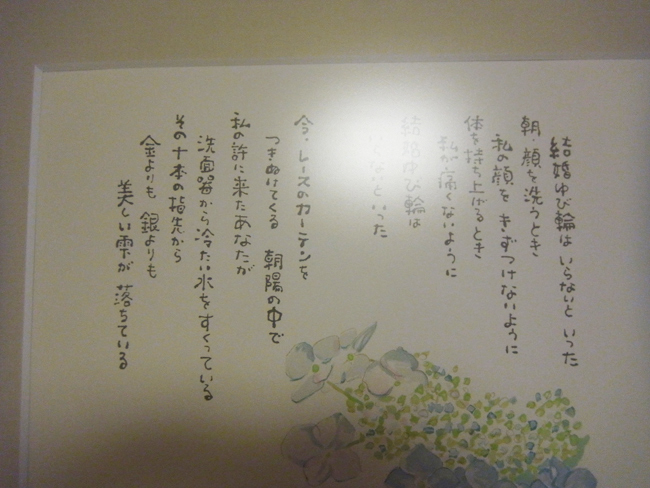 結婚ゆび輪は いらないと いった
朝、顔を洗うとき
私の顔を きずつけないように
体を持ち上げるとき
私が痛くないように
結婚ゆび輪は
いらないといった
今、レースのカーテンを
つきぬけてくる 朝陽の中で
私の許に来たあなたが
洗面器から冷たい水をすくっている
その十本の指先から
金よりも 銀よりも
美しい雫が 落ちている